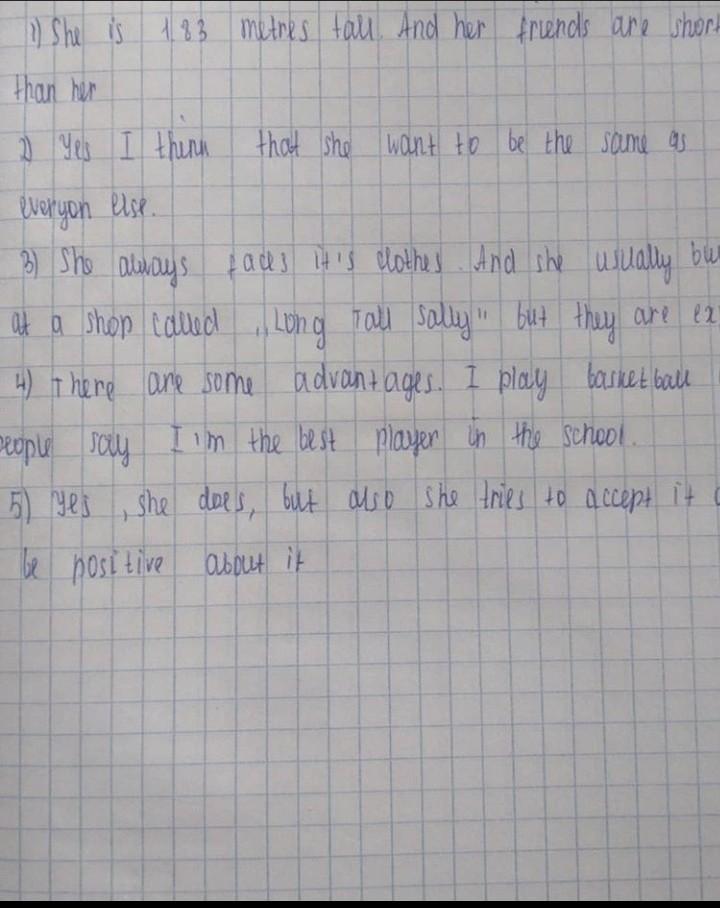 1) She is 1.83 metres tall. And her friends are short
than her
2) Yes I think that she want to be the same as
everyon else.
3) She always faces it's clothes. And she usually
at a shop called ,,Long Tall Sally" but they are
4) There are some advantages. I play basketball
people say I'm the best player in the school.
5) Yes, she does, but also she tries to accept it
be positive about it